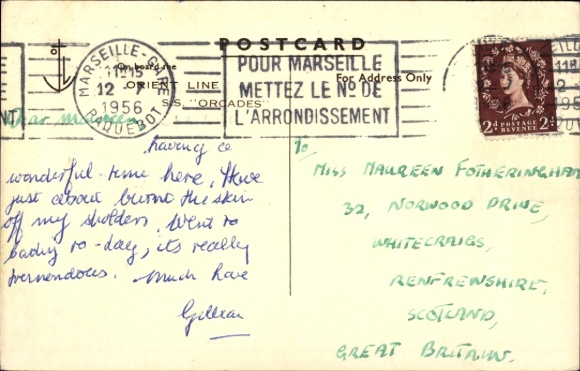 POSTCARD
On board the
ORIENT LINE
S.S. "ORCADES"
For Address Only
MARSEILLE-GARE
12-7
1956
PAQUEBOT
POUR MARSEILLE
METTEZ LE Nº DE
L'ARRONDISSEMENT
2d POSTAGE REVENUE 2d
Dear Maureen,
having a
wonderful time here. Have
just about burnt the skin
off my sholders. Went to
to-day, its really
tremendous. Much love
Gillian
To
MISS MAUREEN FOTHERINGHAM
32, NORWOOD DRIVE,
WHITECRAIGS,
RENFREWSHIRE,
SCOTLAND,
GREAT BRITAIN.